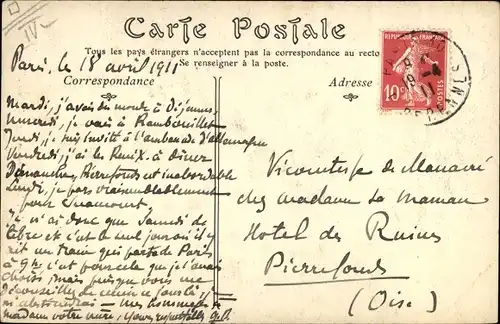 Carte Postale
Tous les pays étrangers n'acceptent pas la correspondance au recto
Se renseigner à la poste.
Paris, le 18 avril 1911
Correspondance
Adresse
RÉPUBLIQUE FRANÇAISE
10c
POSTES
Mardi, j'avais du monde à déjeuner,
mercredi, je vais à Rambouillet
Jeudi, je suis invité à l'ambassade d'allemagne
Vendredi j'ai les à diner
Dimanche, Pierrefonds est inabordable
Lundi, je pars vraisemblablement
pour
je n'ai donc que Samedi de
libre et c'est le seul jour où il y
ait un train qui parte de Paris
à 9h. c'est pour cela que je l'avais
choisi, mais puisque vous me
je
hommages à
madame votre mère,
Vicomtesse de
chez madame sa maman
Hotel des Ruines
Pierrefonds
(Oise)